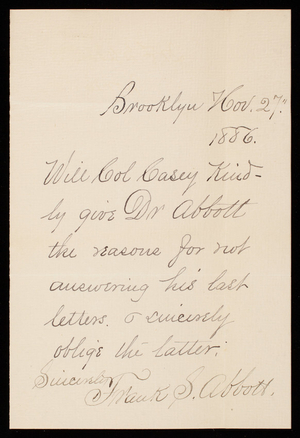 Brooklyn Nov. 27th
1886.
Will Col Casey Kind-
ly give Dr Abbott
the reasons for not
answering his last
letters. & sincerely
oblige the latter.
Sincerely
Frank S. Abbott.